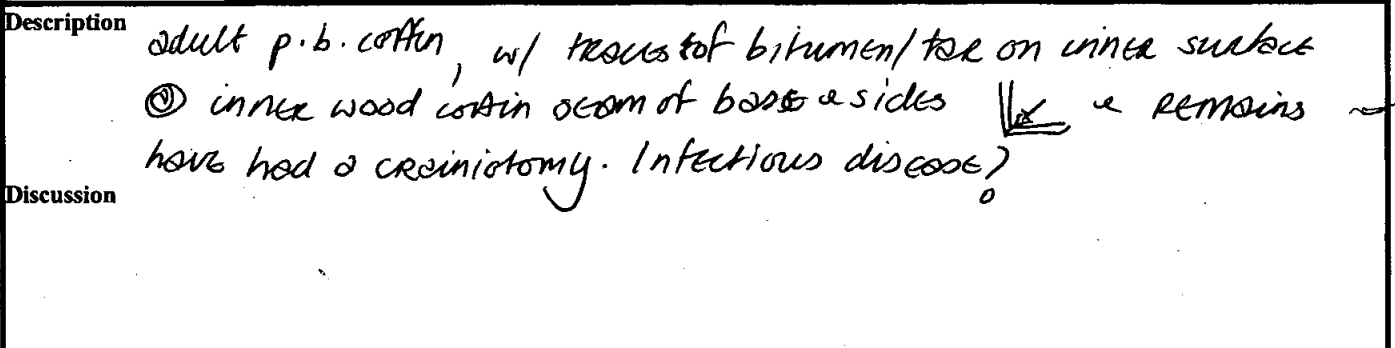 Description
adult p.b. coffin, w/ traces of bitumen/tar on inner surface
@ inner wood coffin seam of base & sides & remains
have had a crainiotomy. Infectious disease?
Discussion